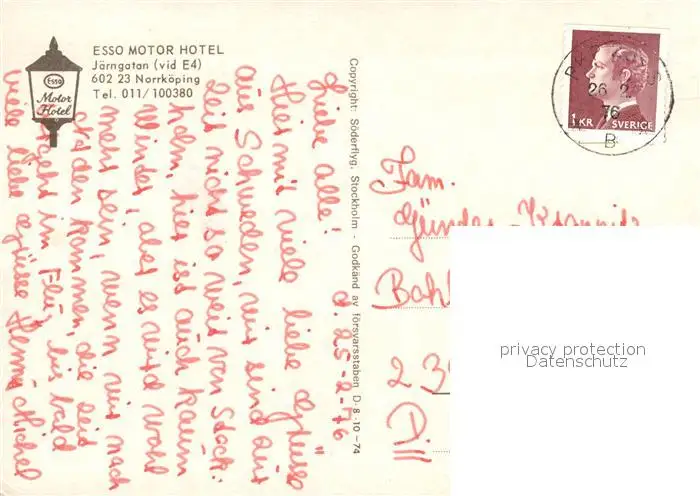 ESSO MOTOR HOTEL
Järngatan (vid E4)
602 23 Norrköping
Tel. 011/100380
Esso
Motor
Hotel
Copyright: Söderflyg, Stockholm - Godkänd av försvarsstaben D-8-10-74
d. 25-2-76
Liebe alle!
Hier mit viele liebe Grüsse
aus Schweden, wir sind zur
Zeit nicht so weit von Stock:
holm, hier ist auch kaum
Winter, aber es wird wohl
mehr sein, wenn wir nach
Norden kommen, die Zeit
geht im Flug, bis bald
viele liebe Grüsse
26 2
76
B
1 KR SVERIGE
Fam.
Bah
Dill
privacy protection
Datenschutz